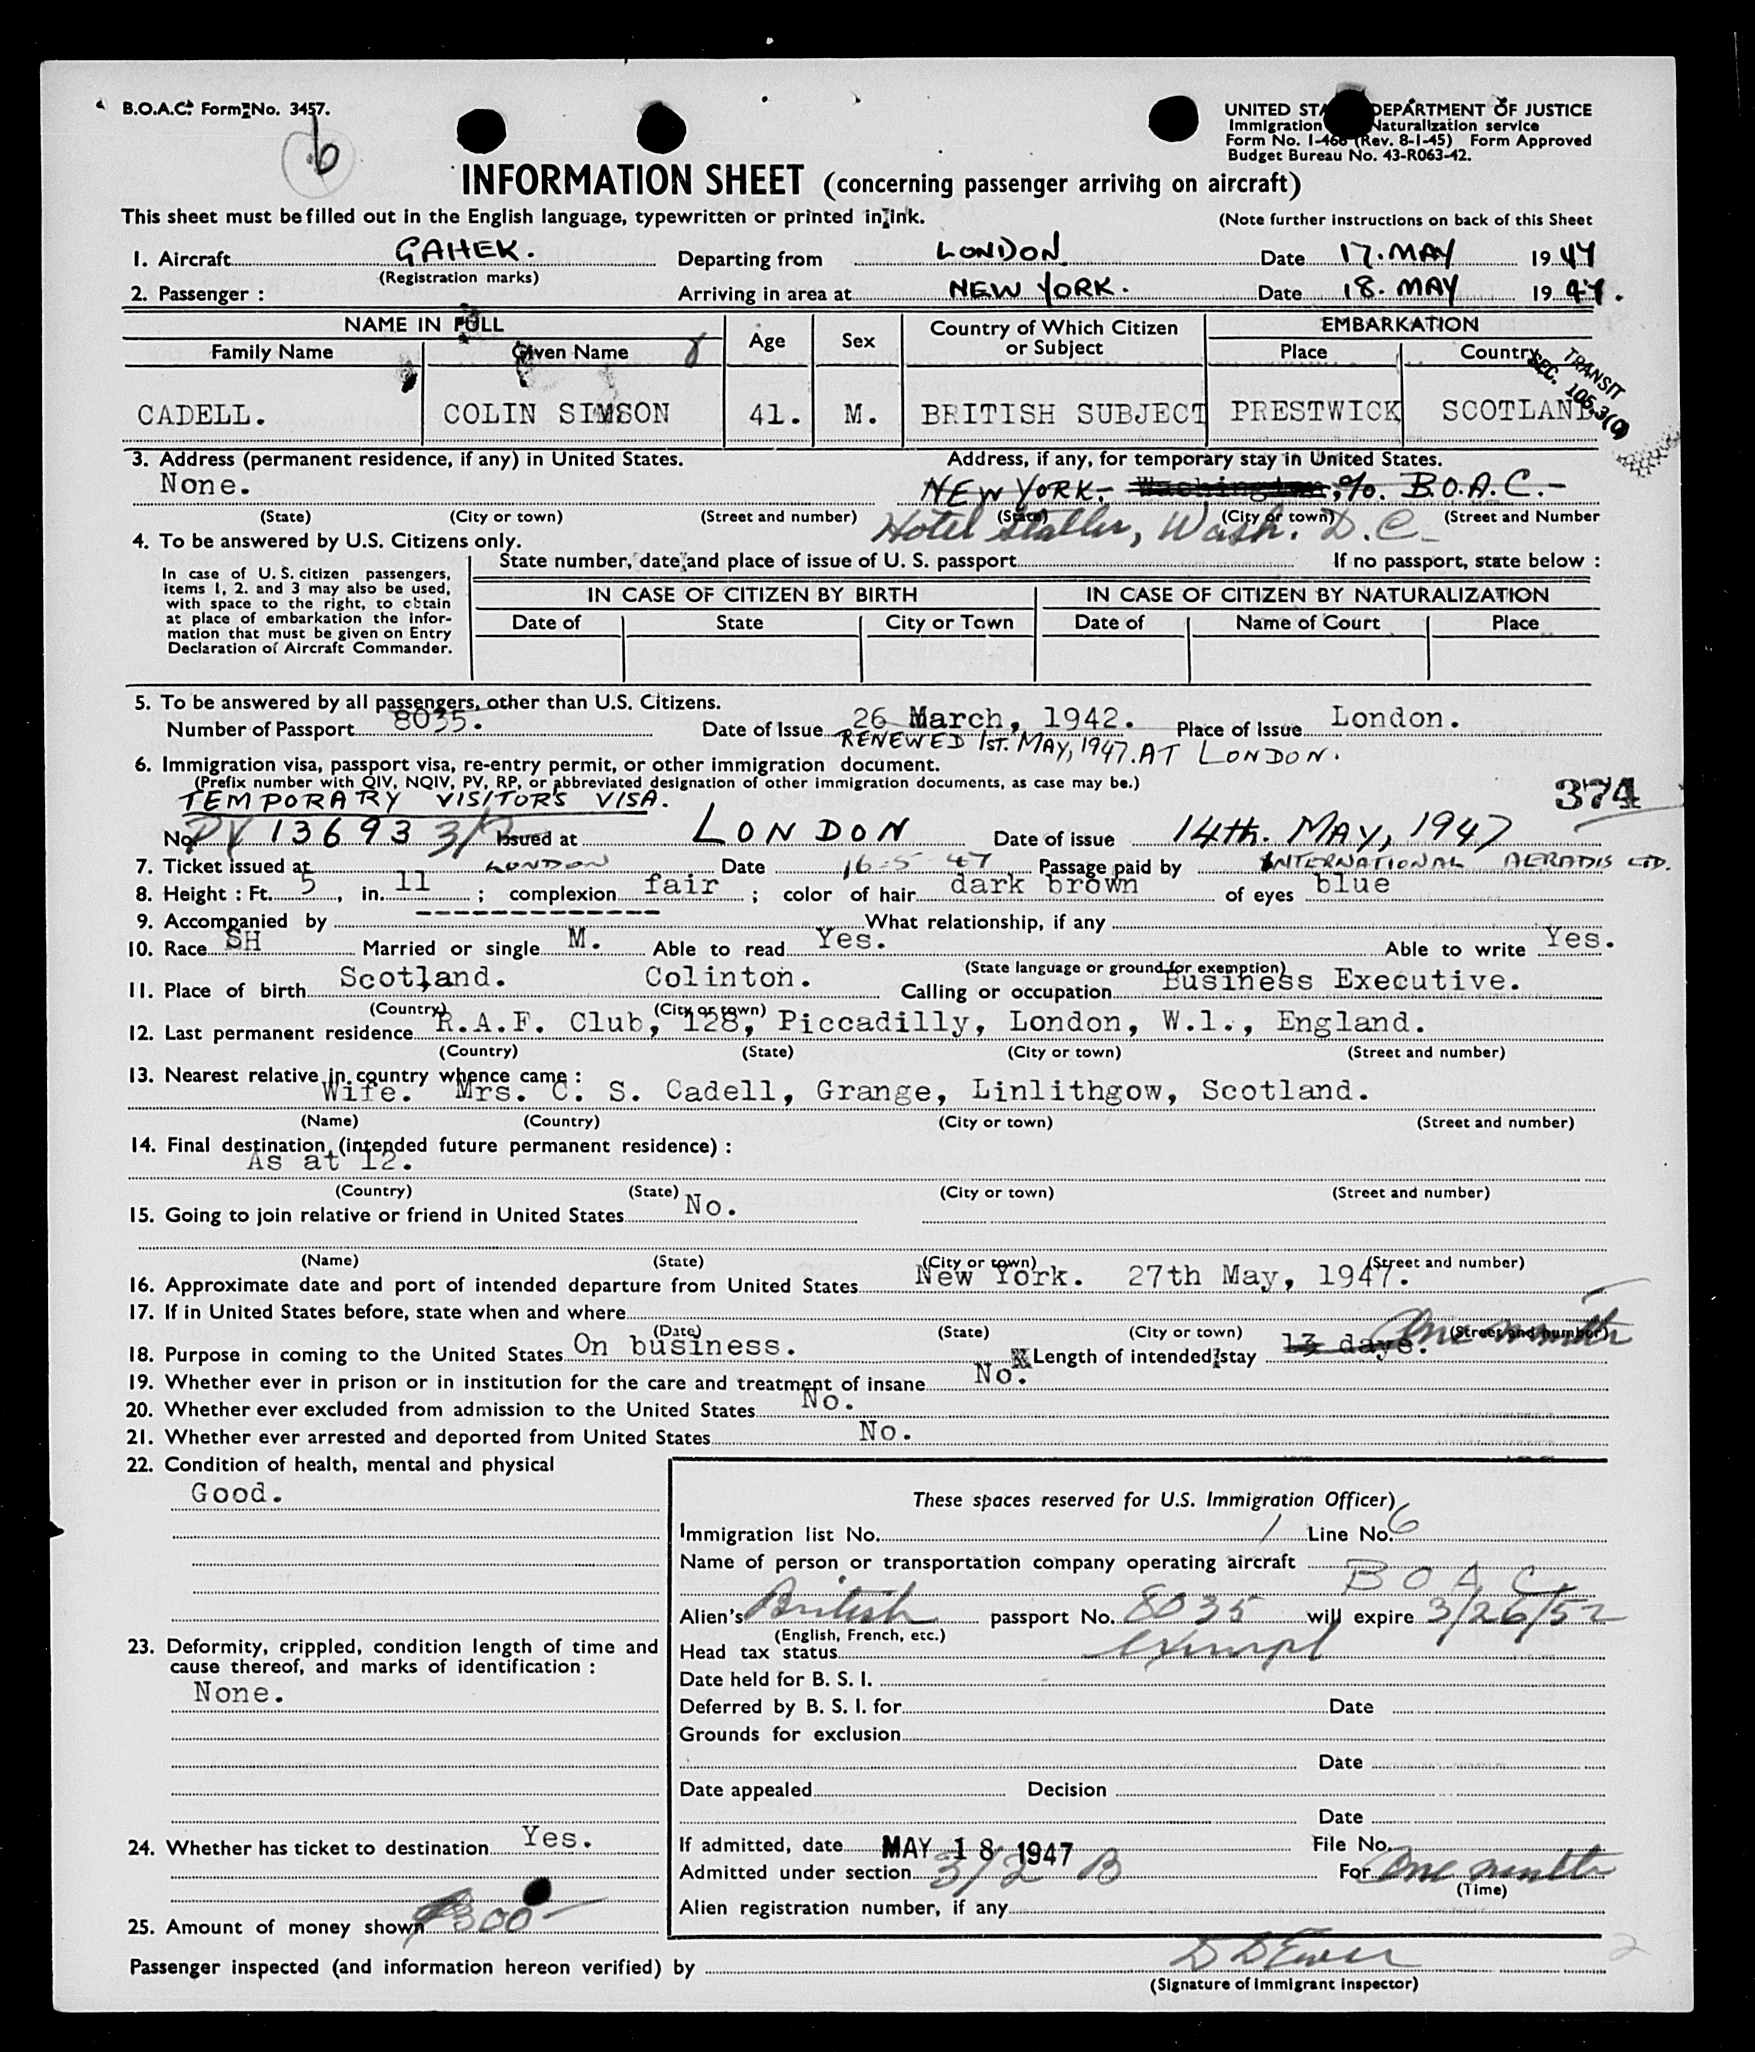 B.O.A.C. Form No. 3457.
6
UNITED STA DEPARTMENT OF JUSTICE
Immigration Naturalization service
Form No. I-466 (Rev. 8-1-45) Form Approved
Budget Bureau No. 43-R063-42.
INFORMATION SHEET (concerning passenger arriving on aircraft)
This sheet must be filled out in the English language, typewritten or printed in ink. (Note further instructions on back of this Sheet
1. Aircraft GAHEK. Departing from LONDON Date 17. MAY 1947
(Registration marks)
2. Passenger : Arriving in area at NEW YORK. Date 18. MAY 1947.
NAME IN FULL Age Sex Country of Which Citizen or Subject EMBARKATION
Family Name Given Name Place Country
TRANSIT
SEC. 105.3(c)
CADELL. COLIN SIMSON 41. M. BRITISH SUBJECT PRESTWICK SCOTLAND
3. Address (permanent residence, if any) in United States. Address, if any, for temporary stay in United States.
None. NEW YORK. Washington, c/o. B.O.A.C.-
(State) (City or town) (Street and number) (State) (City or town) (Street and Number
Hotel Statler, Wash. D.C.
4. To be answered by U.S. Citizens only.
State number, date and place of issue of U. S. passport If no passport, state below :
In case of U. S. citizen passengers,
items 1, 2. and 3 may also be used,
with space to the right, to obtain
at place of embarkation the infor-
mation that must be given on Entry
Declaration of Aircraft Commander.
IN CASE OF CITIZEN BY BIRTH IN CASE OF CITIZEN BY NATURALIZATION
Date of State City or Town Date of Name of Court Place
5. To be answered by all passengers, other than U.S. Citizens.
Number of Passport 8035. Date of Issue 26 March, 1942. Place of Issue London.
RENEWED 1ST. MAY, 1947. AT LONDON.
6. Immigration visa, passport visa, re-entry permit, or other immigration document.
(Prefix number with QIV, NQIV, PV, RP, or abbreviated designation of other immigration documents, as case may be.)
TEMPORARY VISITOR'S VISA. 374
No. PV 13693 3/2 Issued at LONDON Date of issue 14th. MAY, 1947
7. Ticket issued at LONDON Date 16-5 47 Passage paid by INTERNATIONAL AERADIS LTD.
8. Height : Ft. 5, in. 11 ; complexion fair ; color of hair dark brown of eyes blue
9. Accompanied by What relationship, if any
10. Race SH Married or single M. Able to read Yes. Able to write Yes.
(State language or ground for exemption)
11. Place of birth Scotland. Colinton. Calling or occupation Business Executive.
(Country) (City or town)
12. Last permanent residence R.A.F. Club, 128, Piccadilly, London, W.1., England.
(Country) (State) (City or town) (Street and number)
13. Nearest relative in country whence came :
Wife. Mrs. C. S. Cadell, Grange, Linlithgow, Scotland.
(Name) (Country) (City or town) (Street and number)
14. Final destination (intended future permanent residence) :
As at 12.
(Country) (State) (City or town) (Street and number)
15. Going to join relative or friend in United States No.
(Name) (State) (City or town) (Street and number)
16. Approximate date and port of intended departure from United States New York. 27th May, 1947.
17. If in United States before, state when and where
(Date) (State) (City or town) (Street and number)
18. Purpose in coming to the United States On business. Length of intended stay 13 days. One month
19. Whether ever in prison or in institution for the care and treatment of insane No.
20. Whether ever excluded from admission to the United States No.
21. Whether ever arrested and deported from United States No.
22. Condition of health, mental and physical
Good.
These spaces reserved for U.S. Immigration Officer)
Immigration list No. 1 Line No. 6
Name of person or transportation company operating aircraft
B O A C.
Alien's British passport No. 8035 will expire 3/26/52
(English, French, etc.)
23. Deformity, crippled, condition length of time and
cause thereof, and marks of identification :
None.
Head tax status exempt
Date held for B. S. I.
Deferred by B. S. I. for Date
Grounds for exclusion
Date
Date appealed Decision
Date
24. Whether has ticket to destination Yes.
If admitted, date MAY 18 1947 File No.
Admitted under section 3/2 B For One month
(Time)
Alien registration number, if any
25. Amount of money shown 300
Passenger inspected (and information hereon verified) by
(Signature of Immigrant Inspector)
2